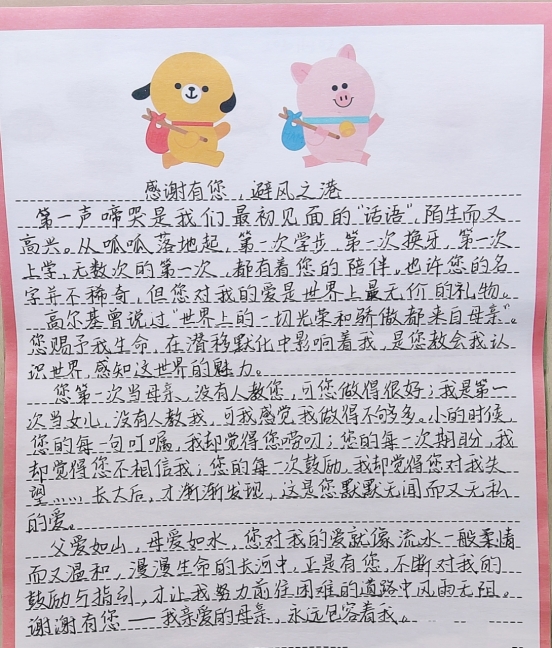 感谢有您，避风之港
第一声啼哭是我们最初见面的“话语”，陌生而又
高兴。从呱呱落地起，第一次学步、第一次换牙、第一次
上学，无数次的第一次，都有着您的陪伴。也许您的名
字并不稀奇，但您对我的爱是世界上最无价的礼物。
高尔基曾说过“世界上的一切光荣和骄傲都来自母亲”。
您赐予我生命，在潜移默化中影响着我，是您教会我认
识世界，感知这世界的魅力。
您第一次当母亲、没有人教您，可您做得很好；我是第一
次当女儿，没有人教我，可我感觉我做得不够多。小的时候，
您的每一句叮嘱，我却觉得您唠叨；您的每一次期盼，我
却觉得您不相信我；您的每一次鼓励，我却觉得您对我失
望……长大后，才渐渐发现，这是您默默无闻而又无私
的爱。
父爱如山，母爱如水，您对我的爱就像流水一般柔情
而又温和，漫漫生命的长河中，正是有您，不断对我的
鼓励与指引，才让我努力前往困难的道路中风雨无阻。
谢谢有您——我亲爱的母亲，永远包容着我。